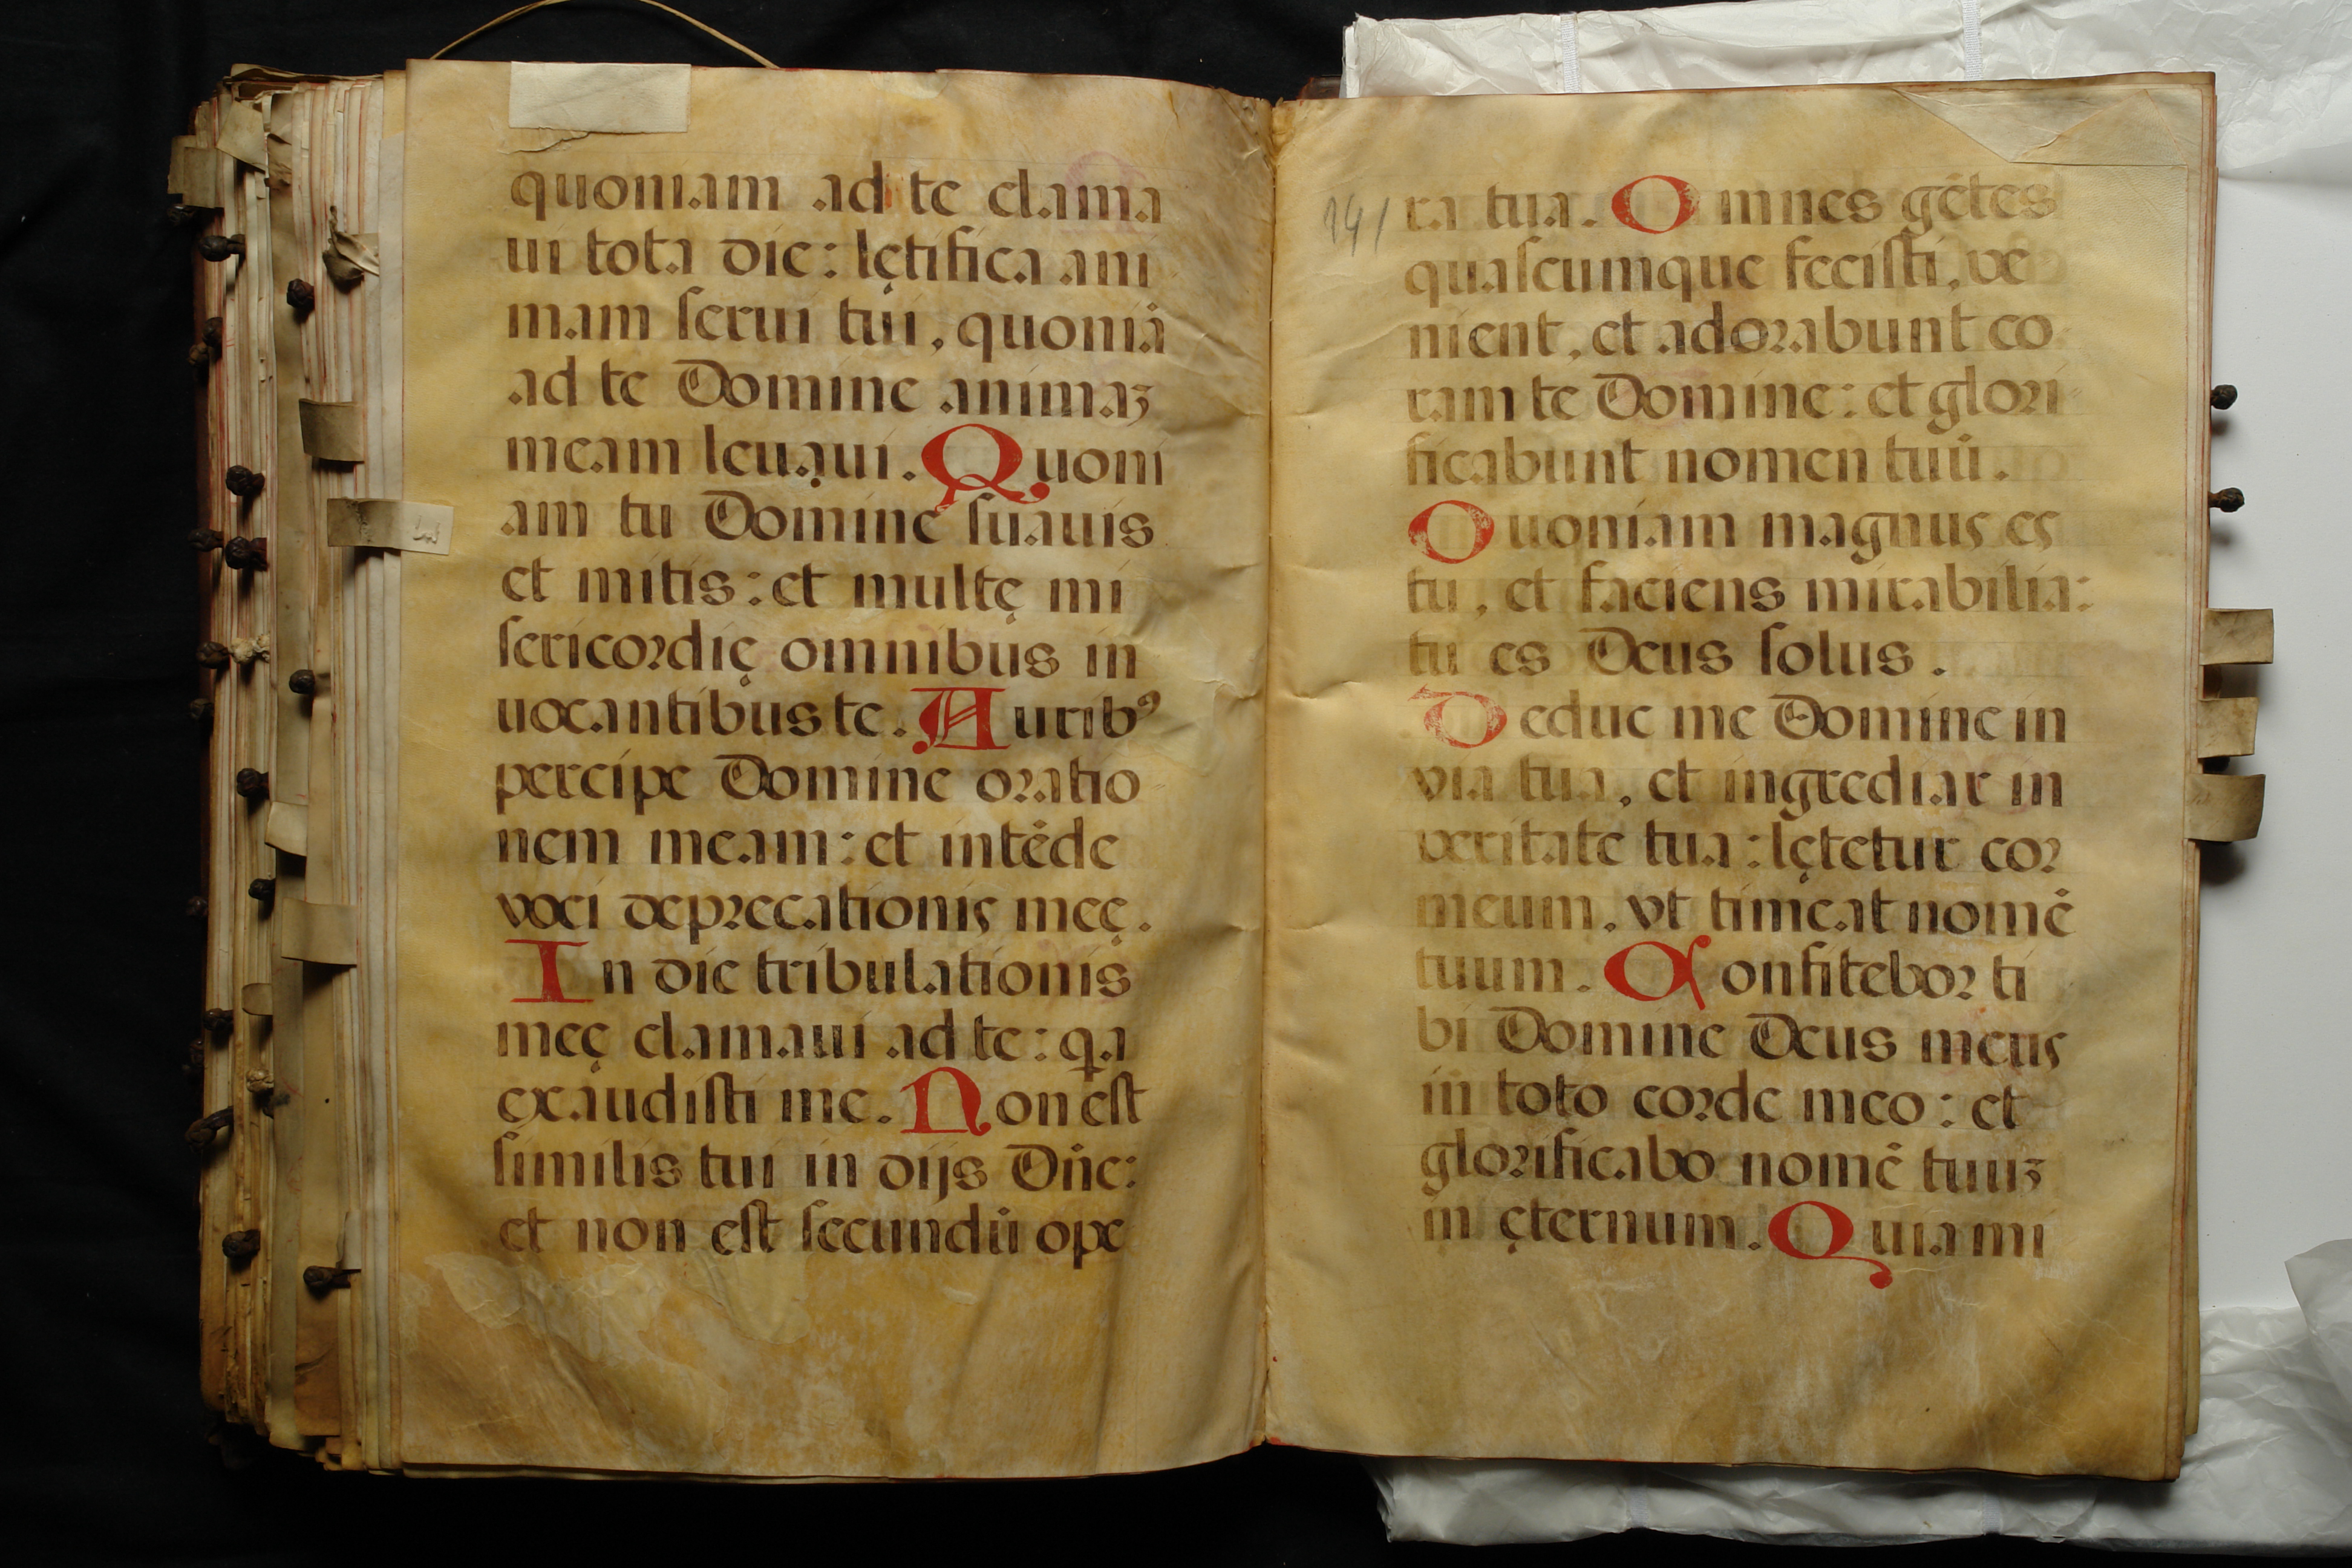 quoniam ad te clama
ui tota die: lętifica ani
mam serui tui, quoniā
ad te Domine animaʒ
meam leuaui. Quoni
am tu Domine suauis
et mitis: et multę mi
sericordię omnibus in
uocantibus te. Aurib⁹
percipe Domine oratio
nem meam: et intēde
voci deprecationis meę.
In die tribulationis
meę clamaui ad te: qa
exaudisti me. Non est
similis tui in dijs Dn̄e:
et non est secundū ope
141
ra tua. Omnes gētes
quascumque fecisti, ve
nient, et adorabunt co
ram te Domine: et glori
ficabunt nomen tuū.
Quoniam magnus es
tu, et faciens mirabilia:
tu es Deus solus.
Deduc me Domine in
via tua, et ingrediar in
veritate tua: lętetur cor
meum, vt timeat nomē
tuum. Confitebor ti
bi Domine Deus meus
in toto corde meo: et
glorificabo nomē tuuʒ
in ęternum. Quia mi